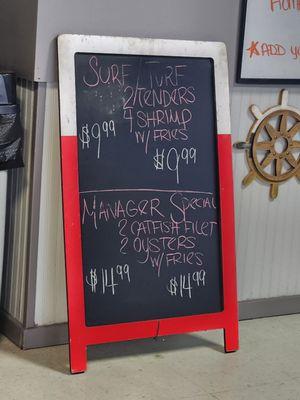 SURF/TURF
2/TENDERS
4 SHRIMP
W/FRIES
$9.99
$9.99
MANAGER SPECIAL
2 CATFISH FILET
2 OYSTERS
W/FRIES
$14.99
$14.99
ADD YO